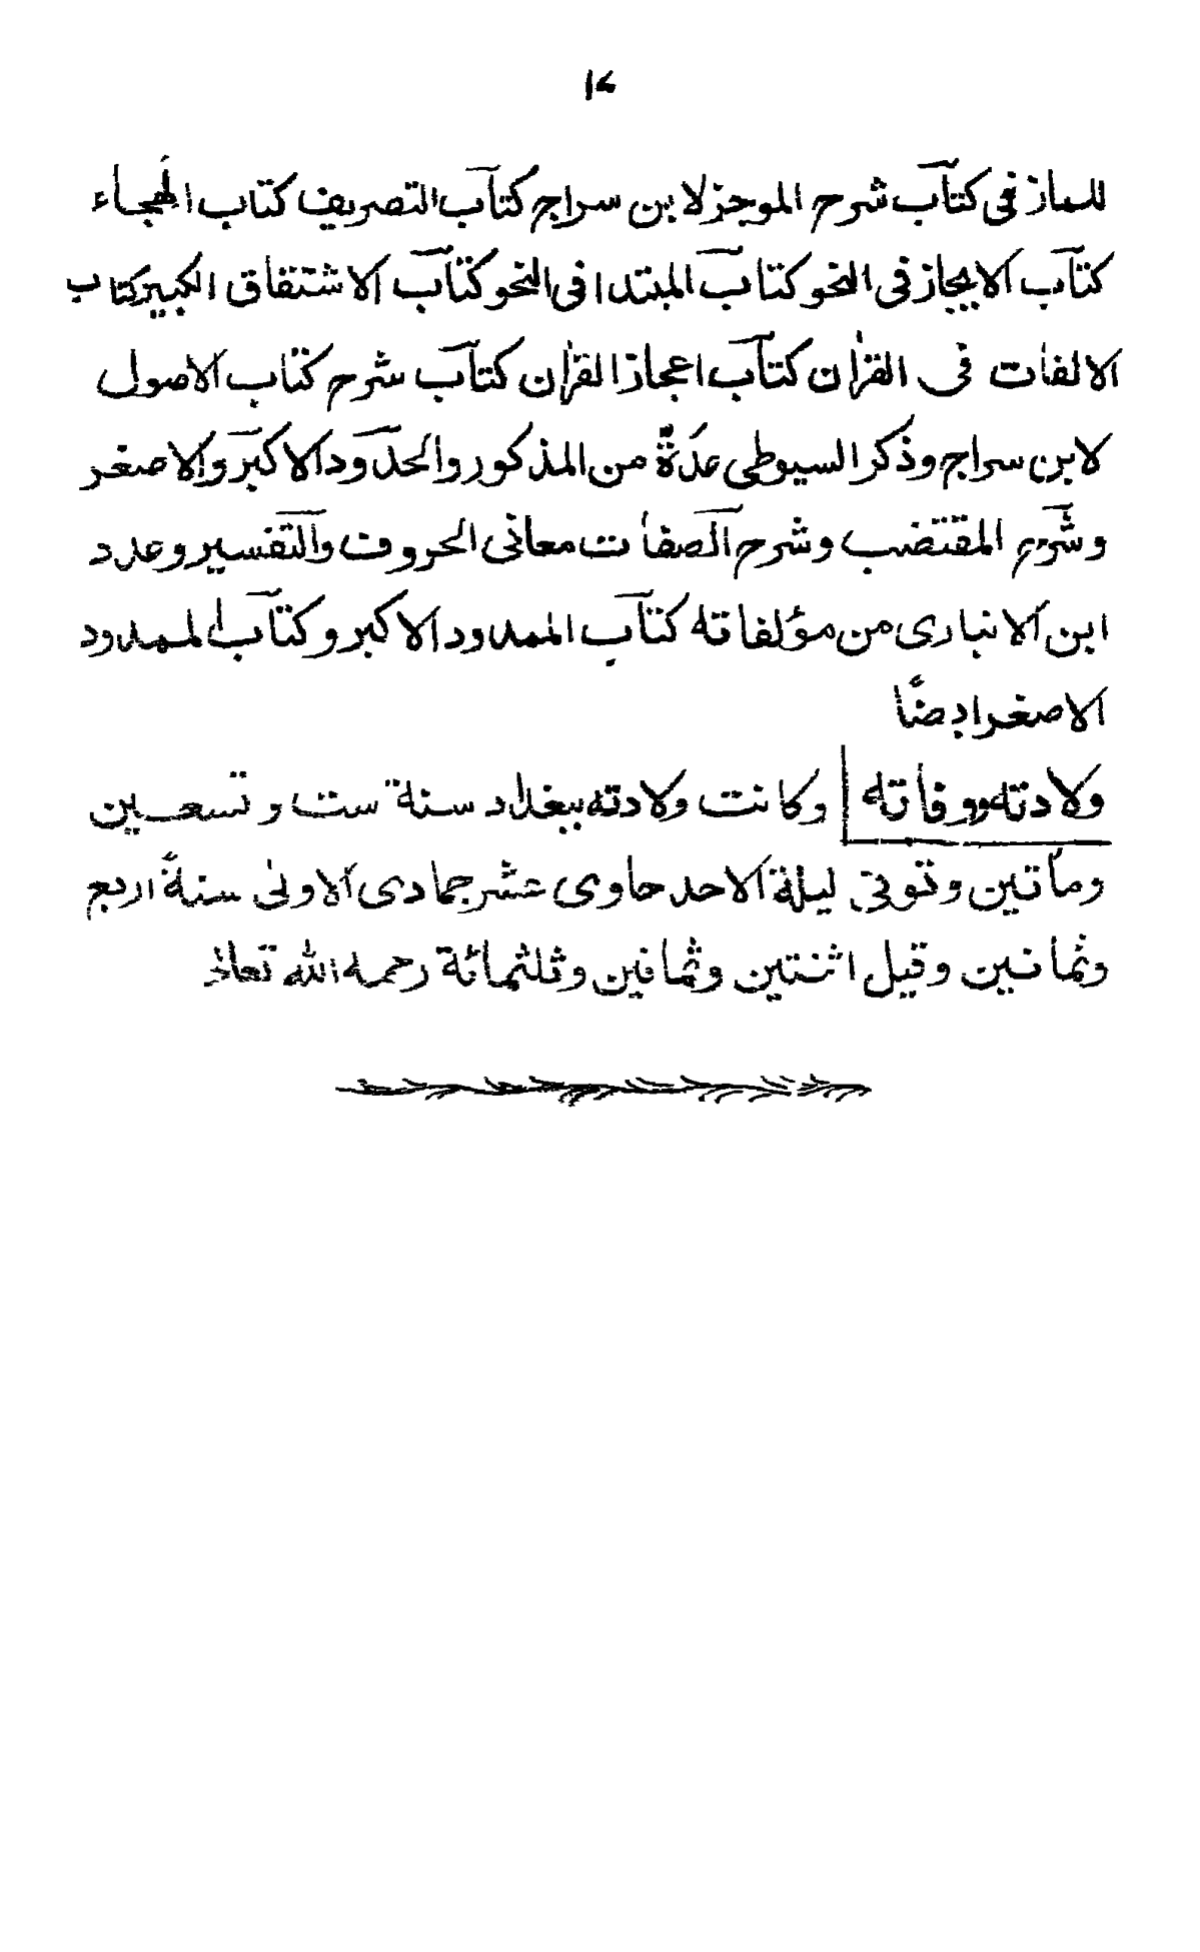 ١٤
للمازنى كتاب شرح الموجز لابن سراج كتاب التصريف كتاب الهجاء
كتاب الايجاز فى النحو كتاب المبتدا فى النحو كتاب الاشتقاق الكبير كتاب
الالفات فى القرٰان كتاب اعجاز القرٰان كتاب شرح كتاب الاصول
لابن سراج وذكر السيوطى عدةً من المذكور والحدود الاكبر والاصغر
وشرح المقتضب وشرح الصفات معانى الحروف والتفسير وعدد
ابن الانبارى من مؤلفاته كتاب الممدود الاكبر وكتاب الممدود
الاصغر ايضًا
ولادته ووفاته وكانت ولادته ببغداد سنة ست وتسعين
ومأتين وتوفى ليلة الاحد حاوى عشر جمادى الاولىٰ سنة اربع
وثمانين وقيل اثنتين وثمانين وثلثمائة رحمه الله تعالىٰ